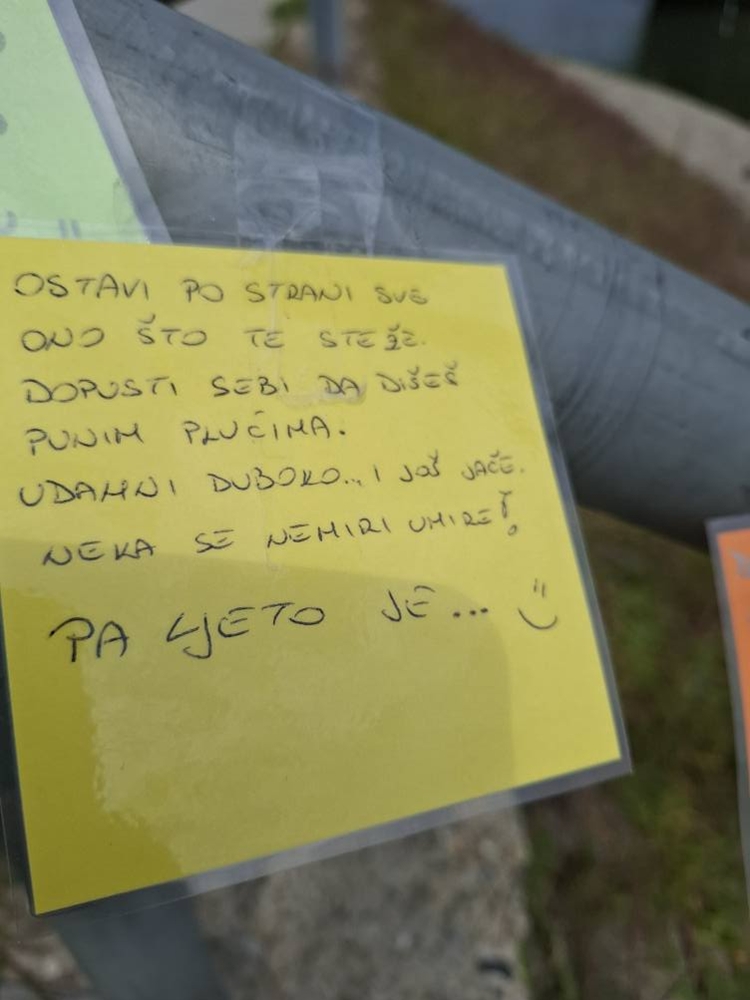 OSTAVI PO STRANI SVE
ONO ŠTO TE STEŽE.
DOPUSTI SEBI DA DIŠEŠ
PUNIM PLUĆIMA.
UDAHNI DUBOKO... I JOŠ JAČE.
NEKA SE NEMIRI UMIRE!
PA LJETO JE... Ü